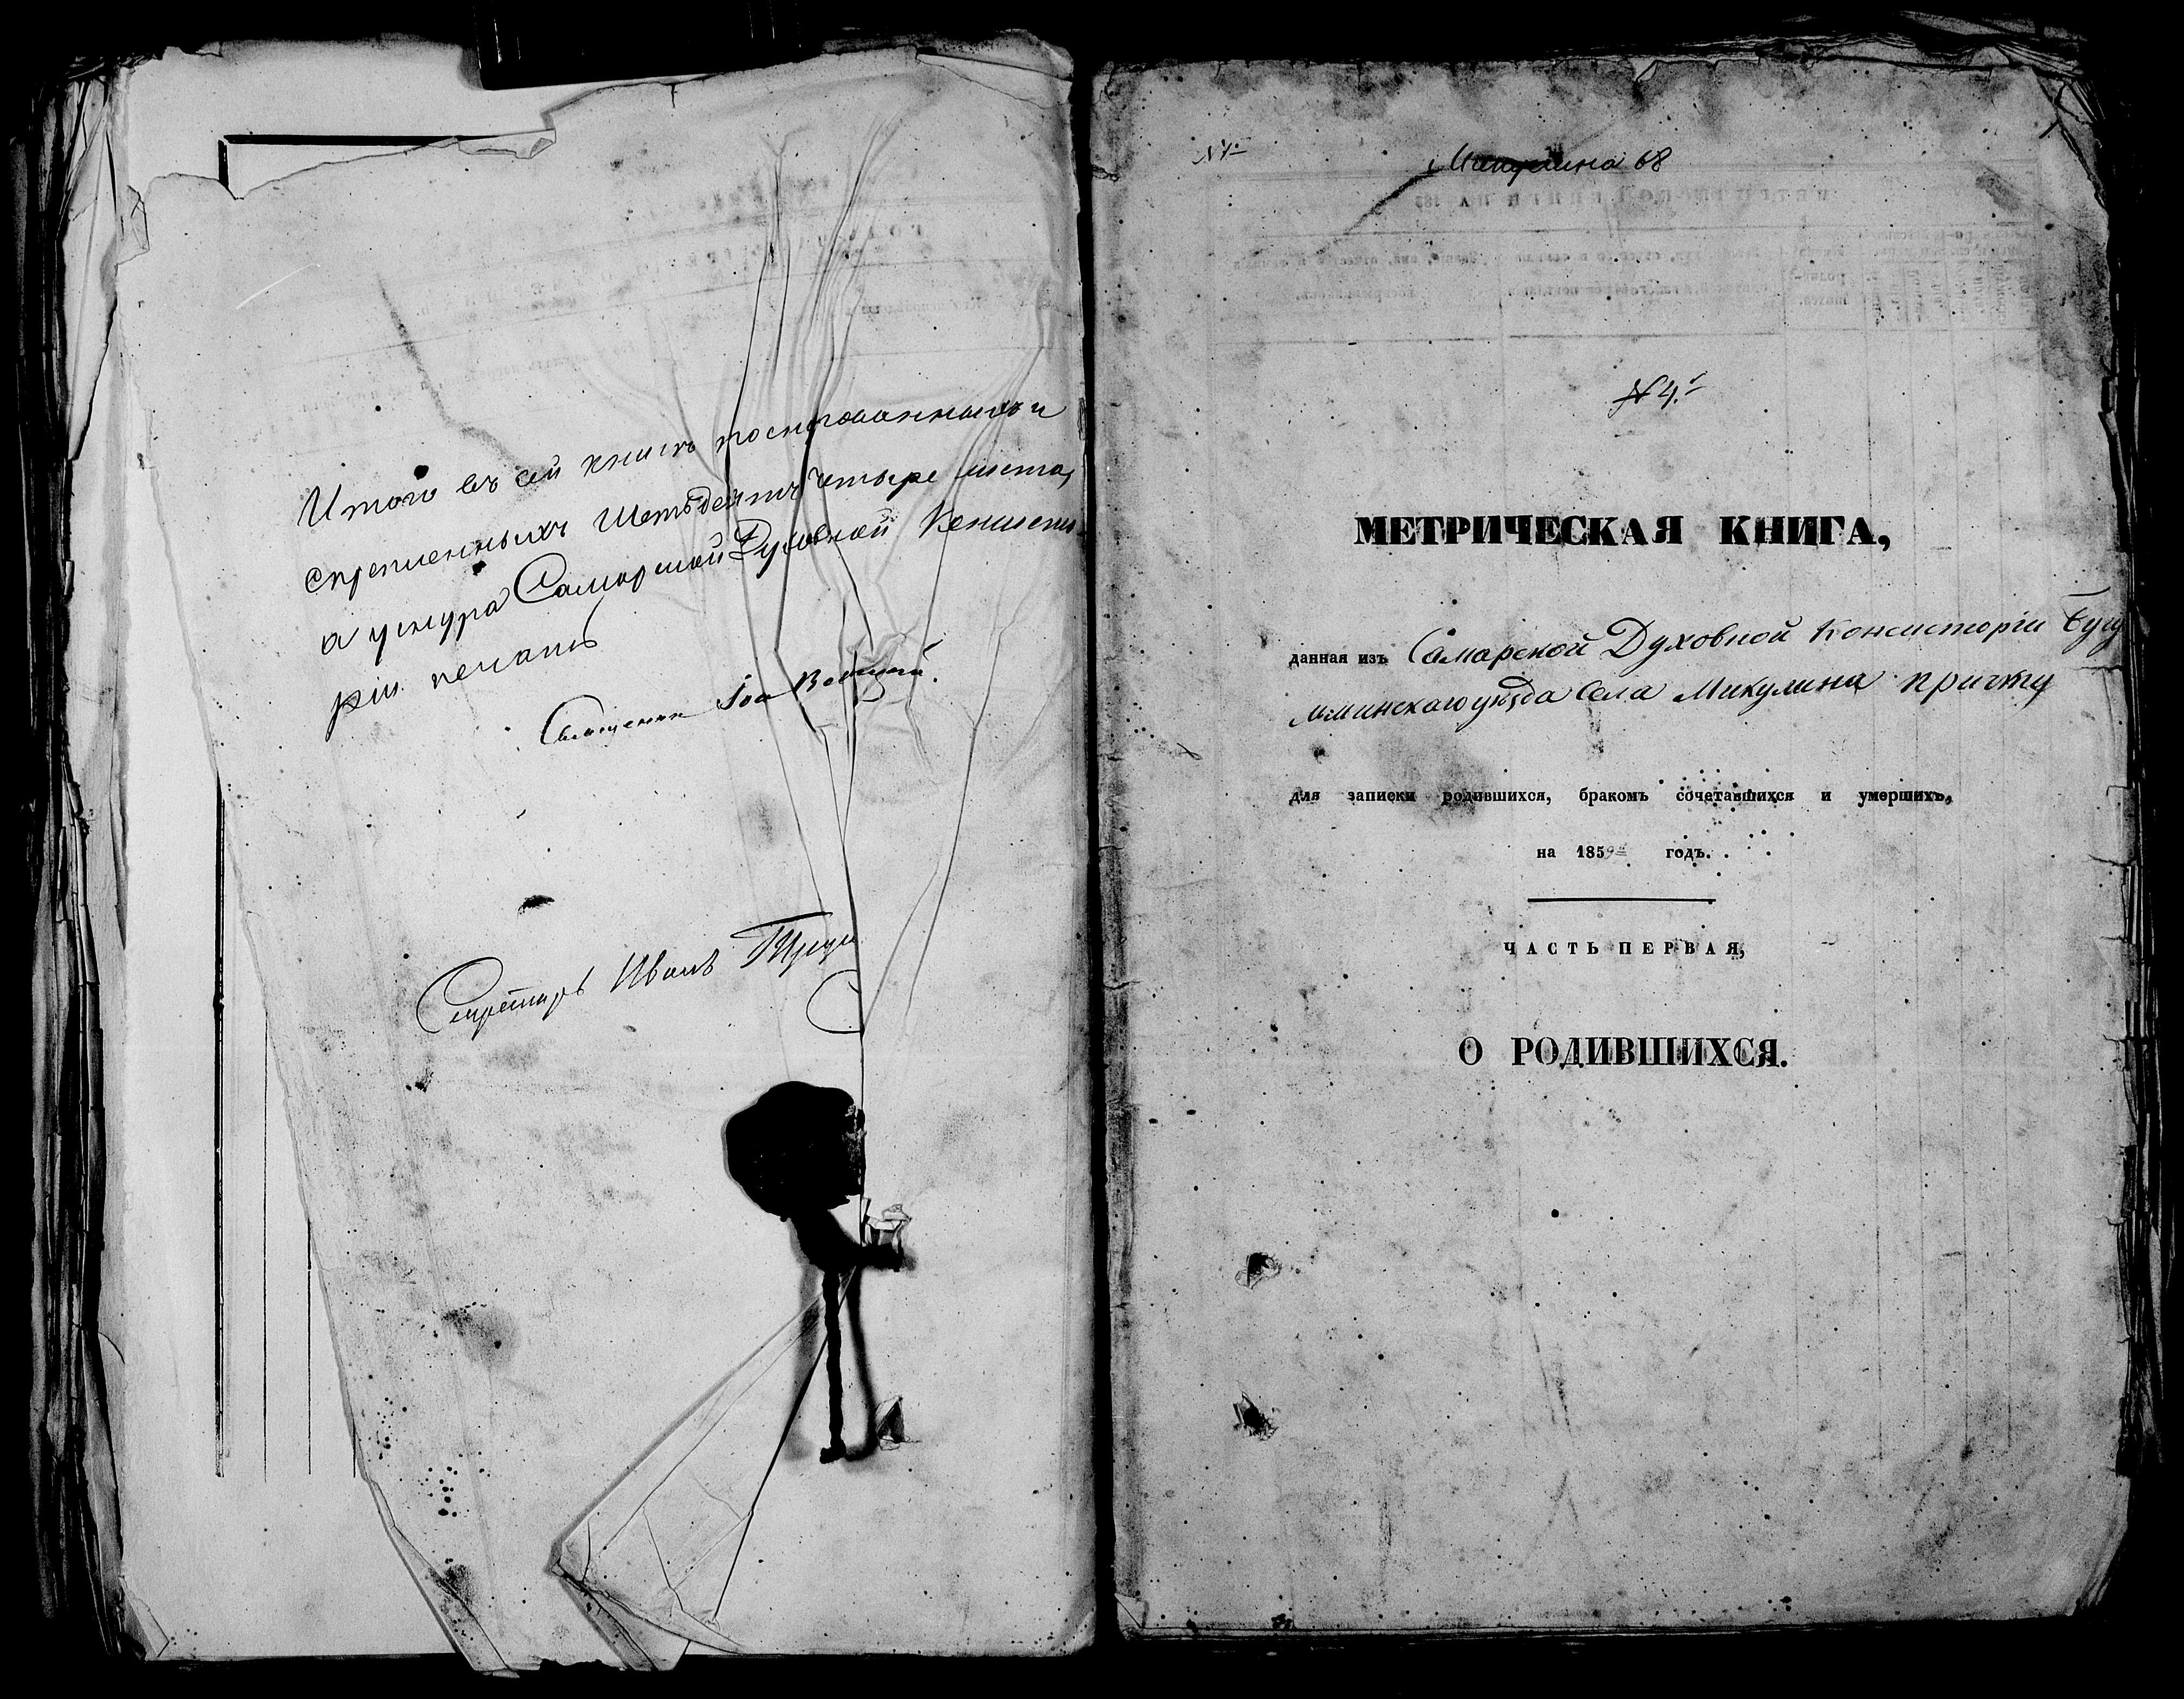 Итого въ сей книгѣ прошнурованныхъ и
скрепленныхъ Шетьдесятъ четыре листа,
а у шнура Самарской Духовной Консисто-
ріи печать
Священникъ
Секретарь Иванъ
№ 4
Микулина 68
№ 4.
МЕТРИЧЕСКАЯ КНИГА,
данная изъ Самарской Духовной Консисторіи Бугу
льминскаго уѣзда Села Микулина причту
для записки родившихся, бракомъ сочетавшихся и умершихъ,
на 1859 годъ.
ЧАСТЬ ПЕРВАЯ,
О РОДИВШИХСЯ.